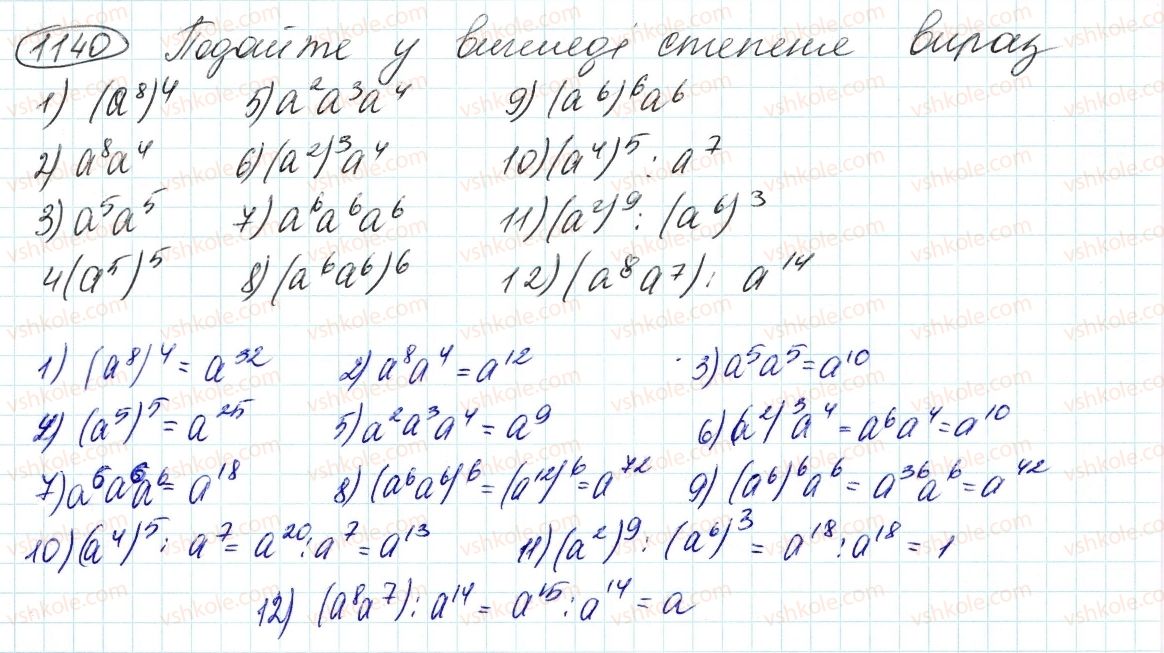 1140 Подайте у вигляді степеня вираз
1) (a⁸)⁴ 5) a²a³a⁴ 9) (a⁶)⁶a⁶
2) a⁸a⁴ 6) (a²)³a⁴ 10) (a⁴)⁵ : a⁷
3) a⁵a⁵ 7) a⁶a⁶a⁶ 11) (a²)⁹ : (a⁶)³
4 (a⁵)⁵ 8) (a⁶a⁶)⁶ 12) (a⁸a⁷) : a¹⁴
1) (a⁸)⁴ = a³² 2) a⁸a⁴ = a¹² 3) a⁵a⁵ = a¹⁰
4) (a⁵)⁵ = a²⁵ 5) a²a³a⁴ = a⁹ 6) (a²)³a⁴ = a⁶a⁴ = a¹⁰
7) a⁶a⁶a⁶ = a¹⁸ 8) (a⁶a⁶)⁶ = (a¹²)⁶ = a⁷² 9) (a⁶)⁶a⁶ = a³⁶a⁶ = a⁴²
10) (a⁴)⁵ : a⁷ = a²⁰ : a⁷ = a¹³ 11) (a²)⁹ : (a⁶)³ = a¹⁸ : a¹⁸ = 1
12) (a⁸a⁷) : a¹⁴ = a¹⁵ : a¹⁴ = a
vshkole.com